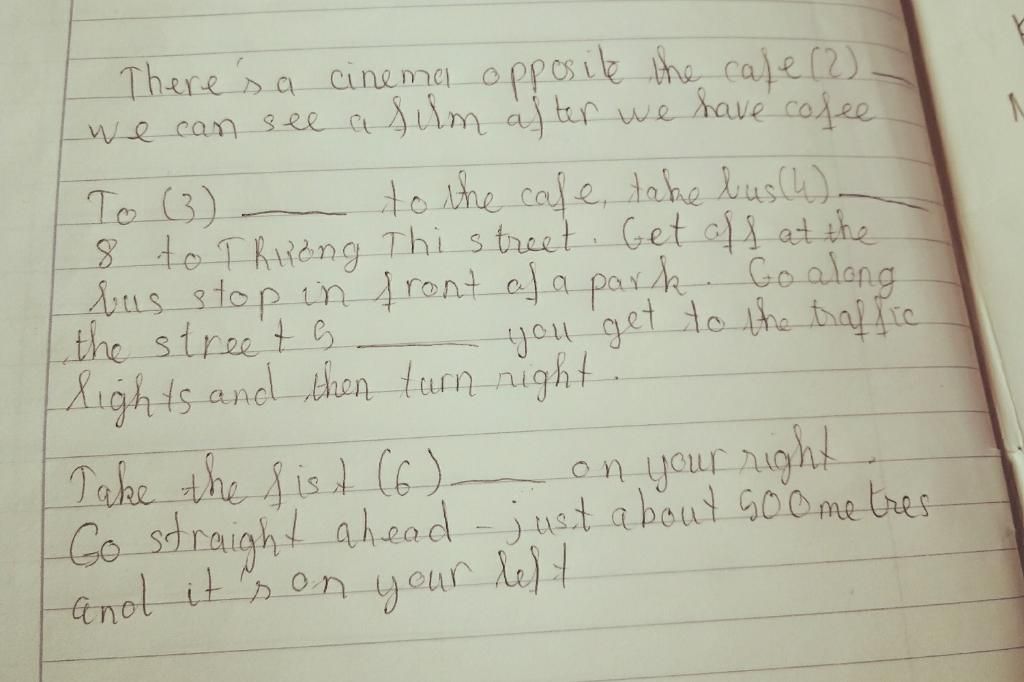 There's a cinema opposite the cafe (2) __
we can see a film after we have cofee
To (3) ____ to the cafe, take bus (4) ____
8 to Trường Thi street. Get off at the
bus stop in front of a park. Go along
the street 5 ____ you get to the traffic
lights and then turn right.
Take the fist (6) ____ on your right.
Go straight ahead - just about 500 metres
and it's on your left